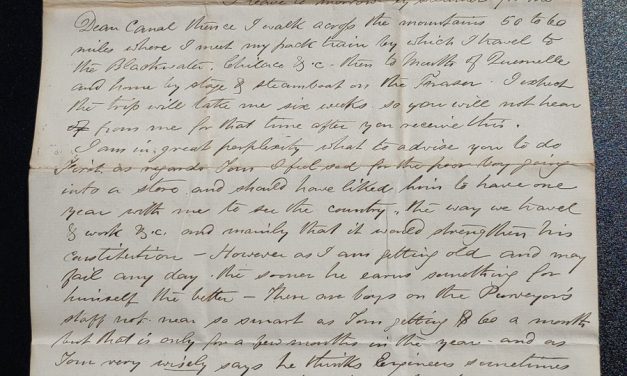 I leave tomorrow by steamer for the
Dean Canal thence I walk across the mountains 50 to 60
miles where I meet my pack train by which I travel to
the Blackwater. Chilaco &c. then to Mouth of Quesnelle
and home by stage & steamboat on the Fraser. I expect
the trip will take me six weeks so you will not hear
from me for that time after you receive this.
I am in great perplexity what to advise you to do
First as regards Tom I feel sad for the poor boy going
into a store and should have liked him to have one
year with me to see the country, the way we travel
& work &c. and mainly that it would strengthen his
constitution – However as I am getting old and may
fail any day the sooner he earns something for
himself the better – There are boys on the Purveyor's
staff not near so smart as Tom getting $60 a month
but that is only for a few months in the year – and as
Tom very wisely says he thinks Engineers sometimes